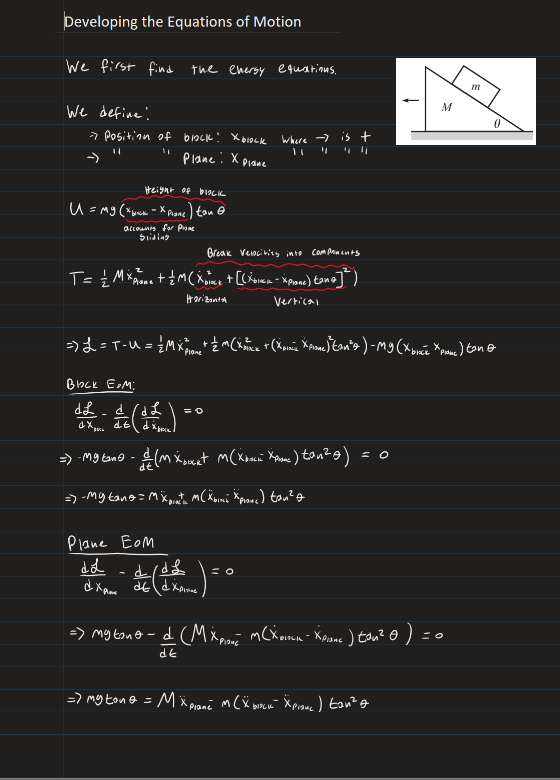 Developing the Equations of Motion
We first find the energy equations.
m
M
θ
We define:
→ Position of block: x_block where → is +
→ " " Plane: x_Plane " " " "
Height of block
U = mg(x_block - x_Plane) tan θ
accounts for Plane
Sliding
Break Velocities into Components
T = ½ Mẋ²_Plane + ½ m(ẋ²_block + [(ẋ_block - ẋ_Plane) tan θ]²)
Horizontal Vertical
⇒ ℒ = T - U = ½ Mẋ²_Plane + ½ m(ẋ²_block + (ẋ_block - ẋ_Plane)² tan² θ) - mg(x_block - x_Plane) tan θ
Block EoM:
dℒ/dx_block - d/dt (dℒ/dẋ_block) = 0
⇒ -mg tan θ - d/dt (mẋ_block + m(ẋ_block - ẋ_Plane) tan² θ) = 0
⇒ -mg tan θ = mẍ_block + m(ẍ_block - ẍ_Plane) tan² θ
Plane EoM
dℒ/dx_Plane - d/dt (dℒ/dẋ_Plane) = 0
⇒ mg tan θ - d/dt (Mẋ_Plane - m(ẋ_block - ẋ_Plane) tan² θ) = 0
⇒ mg tan θ = Mẍ_Plane - m(ẍ_block - ẍ_Plane) tan² θ